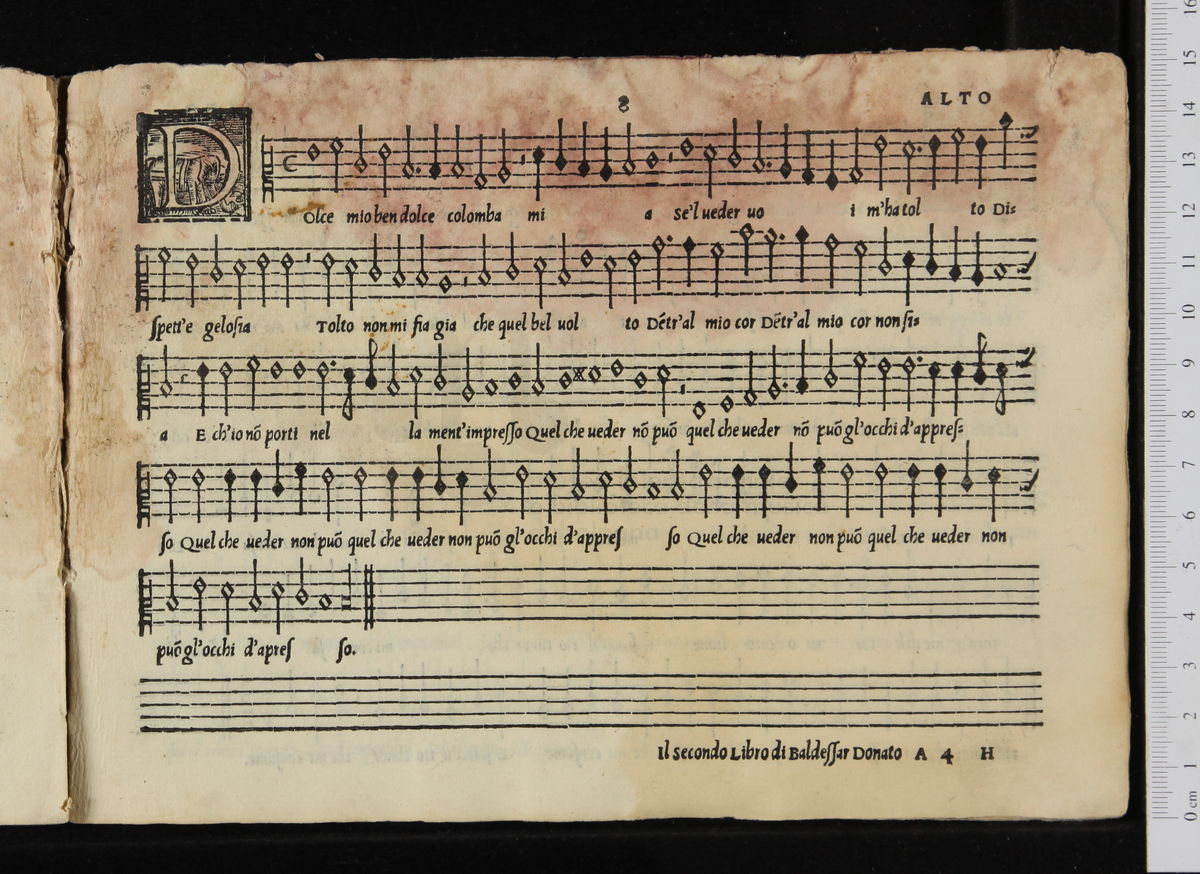 ALTO
8
DOlce mio ben dolce colomba mi a se'l ueder uo i m'ha tol to Dis=
spett'e gelosia Tolto non mi fia gia che quel bel uol to Dētr'al mio cor Dētr'al mio cor non si=
a E ch'io nō porti nel la ment'impresso Quel che ueder nō puō quel che ueder nō puō gl'occhi d'appres=
so Quel che ueder non puō quel che ueder non puō gl'occhi d'appres so Quel che ueder non puō quel che ueder non
puō gl'occhi d'apres so.
Il Secondo Libro di Baldessar Donato A 4 H
16
15
14
13
12
11
10
9
8
7
6
5
4
3
2
1
0 cm